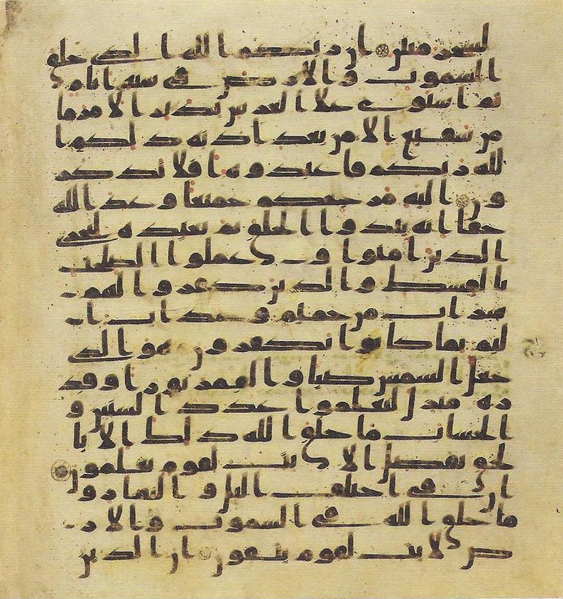 لسحر مبين ان ربكم الله الذي خلق
السموت والارض في ستة ايام
ثم استوى على العرش يدبر الامر ما
من شفيع الا من بعد اذنه ذلكم ا
لله ربكم فاعبدوه افلا تذكر
ون اليه مرجعكم جميعا وعد الله
حقا انه يبدوا الخلق ثم يعيده ليجزي
الذين امنوا وعملوا الصلحت
بالقسط والذين كفروا لهم
شراب من حميم وعذاب ا
ليم بما كانوا يكفرون هو الذي
جعل الشمس ضيا والقمر نورا وقد
ره منزل لتعلموا عدد السنين و
الحساب ما خلق الله ذلك الا با
لحق يفصل الايت لقوم يعلمون
ان في اختلف اليل والنهار و
ما خلق الله في السموت والار
ض لايت لقوم يتقون ان الذين